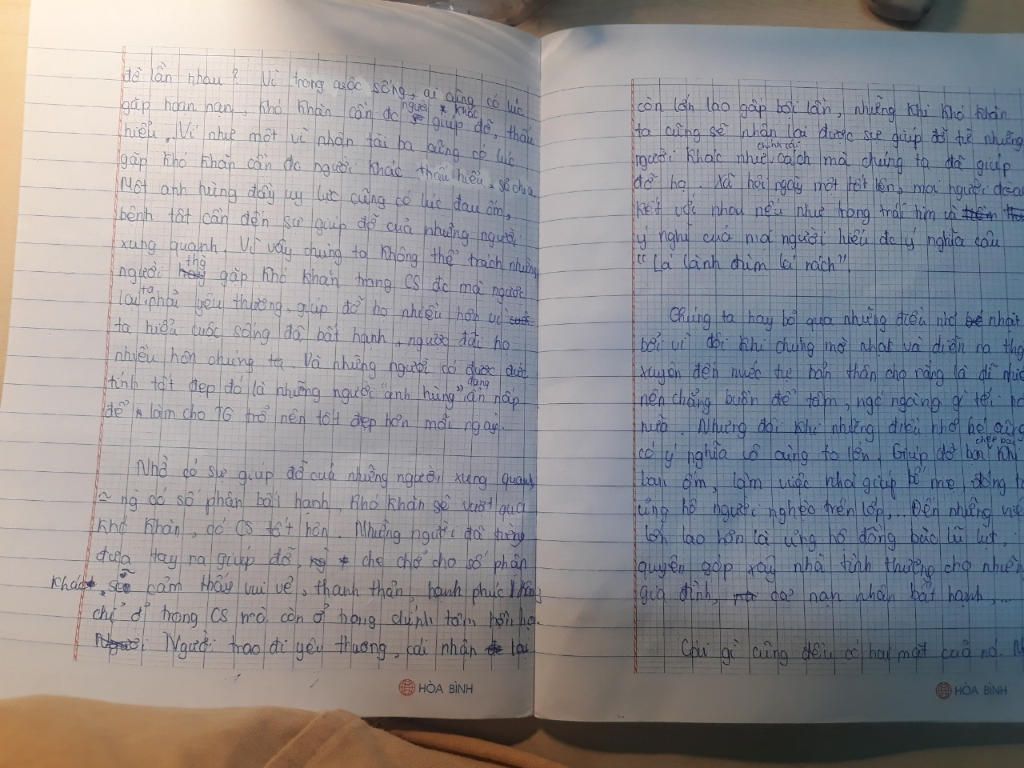 đỡ lẫn nhau? Vì trong cuộc sống, ai cũng có lúc
gặp hoạn nạn, khó khăn cần đc người khác giúp đỡ, thấu
hiểu. Ví như một vĩ nhân tài ba cũng có lúc
gặp khó khăn cần đc người khác thấu hiểu, sẻ chia.
Một anh hùng đầy uy lực cũng có lúc đau ốm,
bệnh tật cần đến sự giúp đỡ của những người
xung quanh. Vì vậy chúng ta không thể trách những
người gặp khó khăn trong CS đc mà ngược
lại ta phải yêu thương, giúp đỡ họ nhiều hơn vì
ta hiểu cuộc sống đã bất hạnh, người đời họ
nhiều hơn chúng ta. Và những người có được đức
tính tốt đẹp đó là những người "anh hùng" đang ẩn nấp
để làm cho TG trở nên tốt đẹp hơn mỗi ngày.
Nhờ có sự giúp đỡ của những người xung quanh
~ ng có số phận bất hạnh, khó khăn sẽ vượt qua
khó khăn, có CS tốt hơn. Những người đã từng
đưa tay ra giúp đỡ, che chở cho số phận
khác, sẽ cảm thấy vui vẻ, thanh thản, hạnh phúc không
chỉ ở trong CS mà còn ở trong chính tâm hồn họ.
Người trao đi yêu thương, cái nhận lại
HÒA BÌNH
còn lớn lao gấp bội lần, những khi khó khăn
ta cũng sẽ nhận lại được sự giúp đỡ từ những
người khác như cách mà chúng ta đã giúp
đỡ họ. Xã hội ngày một tốt lên, mọi người đoàn
kết với nhau nếu như trong trái tim và
ý nghĩ của mọi người hiểu đc ý nghĩa câu
"Lá lành đùm lá rách".
Chúng ta hay bỏ qua những điều nhỏ nhặt
bởi vì đôi khi chúng mờ nhạt và diễn ra
xuyên đến mức tự bản thân cho rằng là
nên chẳng buồn để tâm, ngó ngàng gì tới
nữa. Nhưng đôi khi những điều nhỏ bé
có ý nghĩa vô cùng to lớn. Giúp đỡ bạn chép bài khi
bạn ốm, làm việc nhà giúp bố mẹ, đóng
ủng hộ người nghèo trên lớp,... Đến những việc
lớn lao hơn là ủng hộ đồng bào lũ lụt,
quyên góp xây nhà tình thương cho nhiều
gia đình, nạn nhân bất hạnh,...
Cái gì cũng đều có hai mặt của nó.
HÒA BÌNH